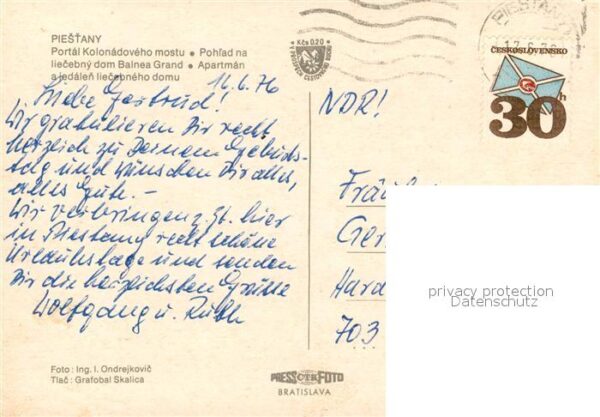 PIEŠŤANY
Portál Kolonádového mostu • Pohľad na
liečebný dom Balnea Grand • Apartmán
a jedáleň liečebného domu
14.6.76
Liebe Gertrud!
Wir gratulieren Dir recht
herzlich zu Deinem Geburts-
tag und wünschen Dir alles,
alles Gute. –
Wir verbringen z. Zt. hier
in Piestany recht schöne
Urlaubstage und senden
Dir die herzlichsten Grüsse
Wolfgang u. Ruth
Foto : Ing. I. Ondrejkovič
Tlač : Grafobal Skalica
Kčs 0,20
PRESSFOTO
BRATISLAVA
PIEŠŤANY
ČESKOSLOVENSKO
30h
NDR!
Fräul
Ger
Hard
703
privacy protection
Datenschutz